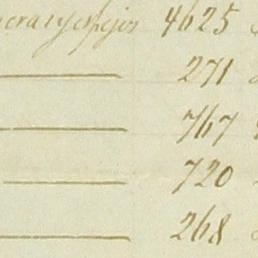 y espejos 4625
271
767
720
268